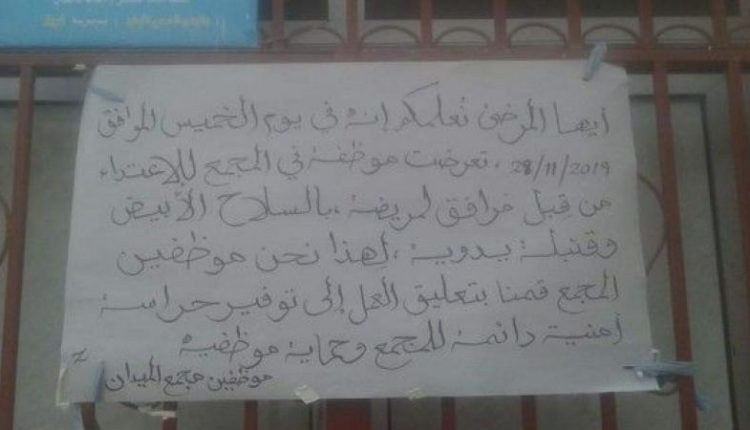 أيها المرضى نُعلمكم إنه في يوم الخميس الموافق
28/11/2019، تعرضت موظفة في المجمع للإعتداء
من قبل مرافق لمريضة، بالسلاح الأبيض
وقنبلة يدوية، لهذا نحن موظفين
المجمع قمنا بتعليق العمل إلى توفير حراسة
أمنية دائمة للمجمع وحماية موظفيه
موظفين مجمع الميدان